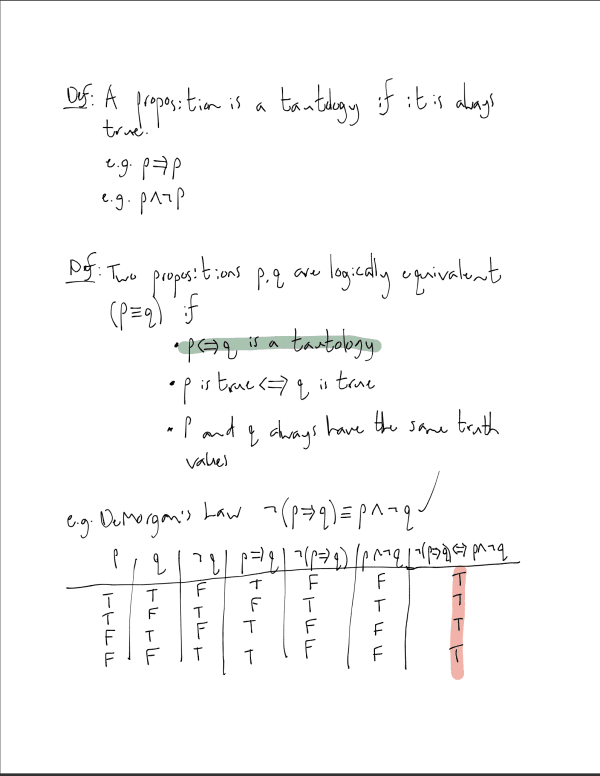 Def: A proposition is a tautology if it is always
true.
e.g. p⇒p
e.g. p∧¬p
Def: Two propositions p,q are logically equivalent
(p≡q) if
• p⇔q is a tautology
• p is true ⇔ q is true
• p and q always have the same truth
values
e.g. DeMorgan's Law ¬(p⇒q)≡p∧¬q ✓
p | q | ¬q | p⇒q | ¬(p⇒q) | p∧¬q | ¬(p⇒q)⇔p∧¬q
T | T | F | T | F | F | T
T | F | T | F | T | T | T
F | T | F | T | F | F | T
F | F | T | T | F | F | T